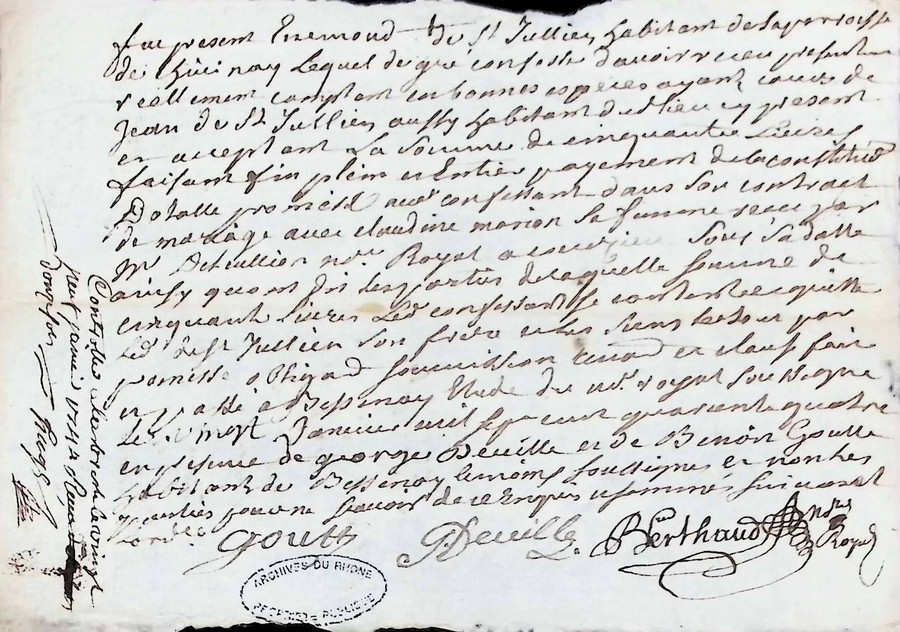 fut present Enemond de St Jullien habitant de la parroisse
de Chevinay Lequel de gré confesse d'avoir receu presentem
reellement comptant en bonnes especes ayant cours de
Jean de St Jullien aussy habitant dud lieu cy present
et acceptant La somme de cinquante Livres
faisant fin plein et Entier payement de la constitu
Dotalle promise aud confessant dans son contract
de mariage avec claudine marion sa femme receu par
Me no.re Royal a sous sa datte
ainsy quont dit les parties de laquelle somme de
cinquante livres led confessant se contente et quitte
led de St Jullien son frere et les siens le tout par
promesse obligaõn soumission renõn et clauses fait
et passé a Bessenay Etude du no.e royal soussigné
le vingt Janvier mil sept cent quarante quatre
en presence de george Deville et de Benoit Goutte
habitants de Bessenay temoins soussignes et non les
parties pour ne scavoir de ce Enquis et sommés suivant
Lord.ce
goutte
Deville
Berthaud no.re Royal
Controllé
neuf janvier 1744 Receu
douze sols
ARCHIVES DU RHONE
PROPRIETE PUBLIQUE